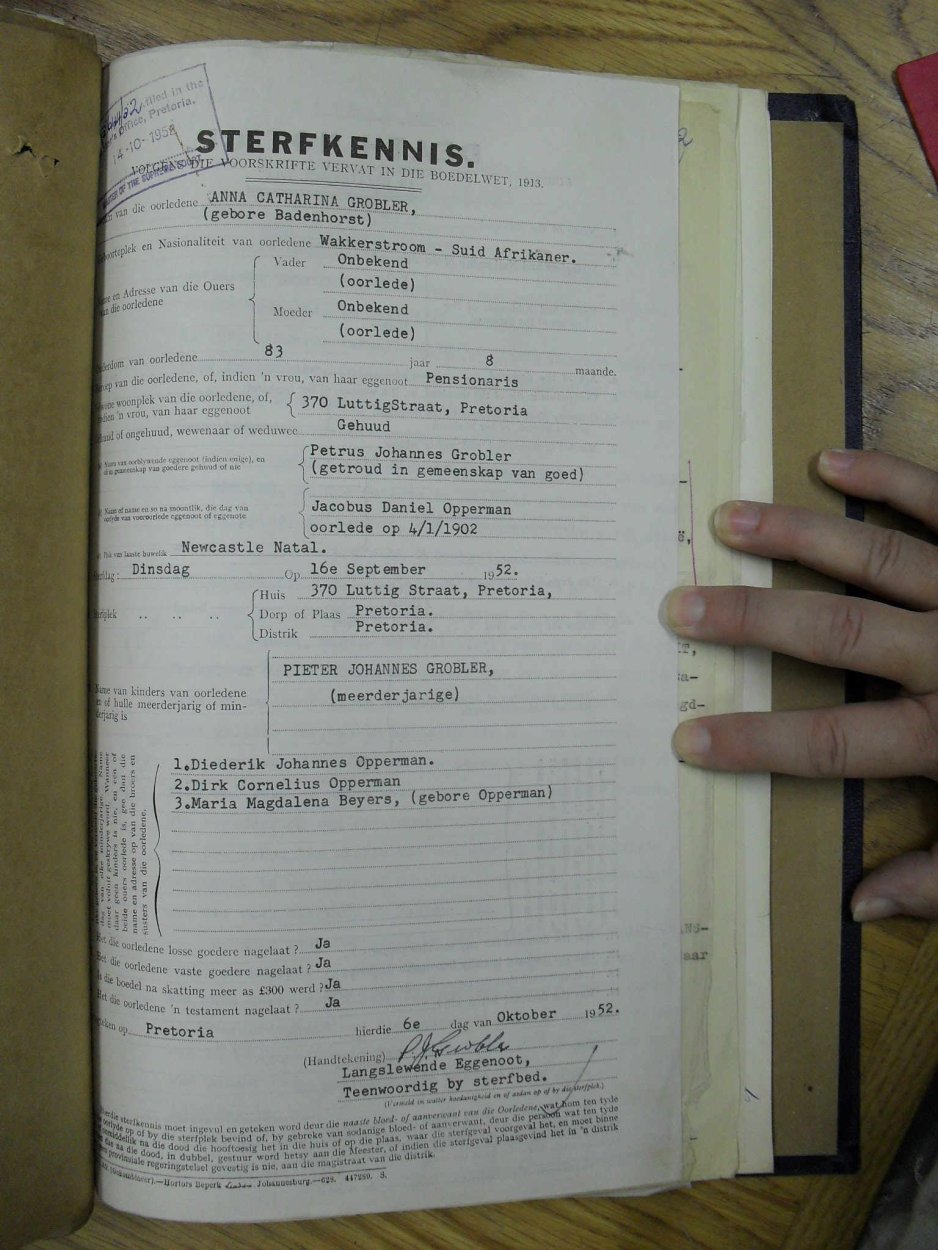 filed in the
Office, Pretoria.
14-10-1952
STERFKENNIS.
VOLGENS DIE VOORSKRIFTE VERVAT IN DIE BOEDELWET, 1913.
van die oorledene ANNA CATHARINA GROBLER,
(gebore Badenhorst)
en Nasionaliteit van oorledene Wakkerstroom - Suid Afrikaner.
Vader Onbekend
(oorlede)
en Adresse van die Ouers
van die oorledene
Moeder Onbekend
(oorlede)
van oorledene 83 jaar 8 maande.
van die oorledene, of, indien 'n vrou, van haar eggenoot Pensionaris
woonplek van die oorledene, of,
indien 'n vrou, van haar eggenoot 370 LuttigStraat, Pretoria
of ongehuud, wewenaar of weduwee Gehuud
Naam van oorblywende eggenoot (indien enige), en
of in gemeenskap van goedere gehuud of nie
Petrus Johannes Grobler
(getroud in gemeenskap van goed)
Name of name en so na moontlik, die dag van
oorlyde van vooroorlede eggenoot of eggenote
Jacobus Daniel Opperman
oorlede op 4/1/1902
Plek van laaste huwelik Newcastle Natal.
Dinsdag Op 16e September 1952.
Huis 370 Luttig Straat, Pretoria,
.. .. .. Dorp of Plaas Pretoria.
Distrik Pretoria.
PIETER JOHANNES GROBLER,
(meerderjarige)
Name van kinders van oorledene
en of hulle meerderjarig of min-
derjarig is
dag van elke minderjarige. Name
moet voluit geskrywe word. Wanneer
daar geen kinders is nie, en een of
beide ouers oorlede is, gee dan die
name en adresse op van die broers en
susters van die oorledene.
1.Diederik Johannes Opperman.
2.Dirk Cornelius Opperman
3.Maria Magdalena Beyers, (gebore Opperman)
Het die oorledene losse goedere nagelaat ? Ja
Het die oorledene vaste goedere nagelaat ? Ja
Is die boedel na skatting meer as £300 werd ? Ja
Het die oorledene 'n testament nagelaat ? Ja
op Pretoria hierdie 6e dag van Oktober 1952.
(Handtekening) P.J. Grobler
Langslewende Eggenoot,
Teenwoordig by sterfbed.
(Vermeld in watter hoedanigheid en of aldan op of by die sterfplek.)
sterfkennis moet ingevul en geteken word deur die naaste bloed- of aanverwant van die Oorledene, wat hom ten tyde
op of by die sterfplek bevind of, by gebreke van sodanige bloed- of aanverwant, deur die persoon wat ten tyde
na die dood die hooftoesig het in die huis of op die plaas, waar die sterfgeval voorgeval het, en moet binne
na die dood, in dubbel, gestuur word hetsy aan die Meester, of indien die sterfgeval plaasgevind het in 'n distrik
provinsiale regeringstelsel gevestig is nie, aan die magistraat van die distrik.
Hortors Beperk Johannesburg.—628. 447289. S.